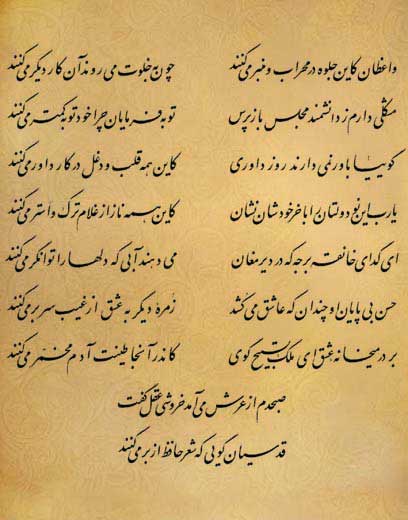 واعظان کاین جلوه در محراب و منبر می‌کنند چون به خلوت می‌روند آن کار دیگر می‌کنند
مشکلی دارم ز دانشمند مجلس باز پرس توبه فرمایان چرا خود توبه کمتر می‌کنند
گوییا باور نمی‌دارند روز داوری کاین همه قلب و دغل در کار داور می‌کنند
یارب این نودولتان را با خر خودشان نشان کاین همه ناز از غلام ترک و استر می‌کنند
ای گدای خانقه برجه که در دیر مغان می‌دهند آبی که دلها را توانگر می‌کنند
حسن بی‌پایان او چندان که عاشق می‌کشد زمرهٔ دیگر به عشق از غیب سر بر می‌کنند
بر در میخانهٔ عشق ای ملک تسبیح گوی کاندر آنجا طینت آدم مخمر می‌کنند
صبحدم از عرش می‌آمد خروشی عقل گفت
قدسیان گویی که شعر حافظ از بر می‌کنند